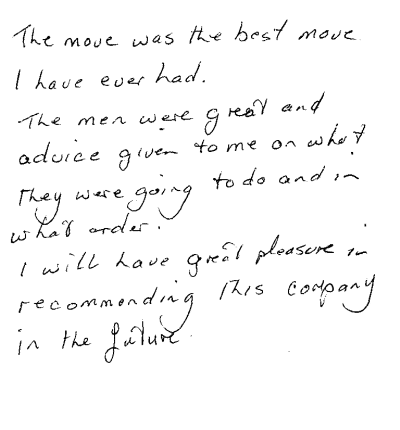 The move was the best move
I have ever had.
The men were great and
advice given to me on what
They were going to do and in
what order.
I will have great pleasure in
recommending This company
in the future.